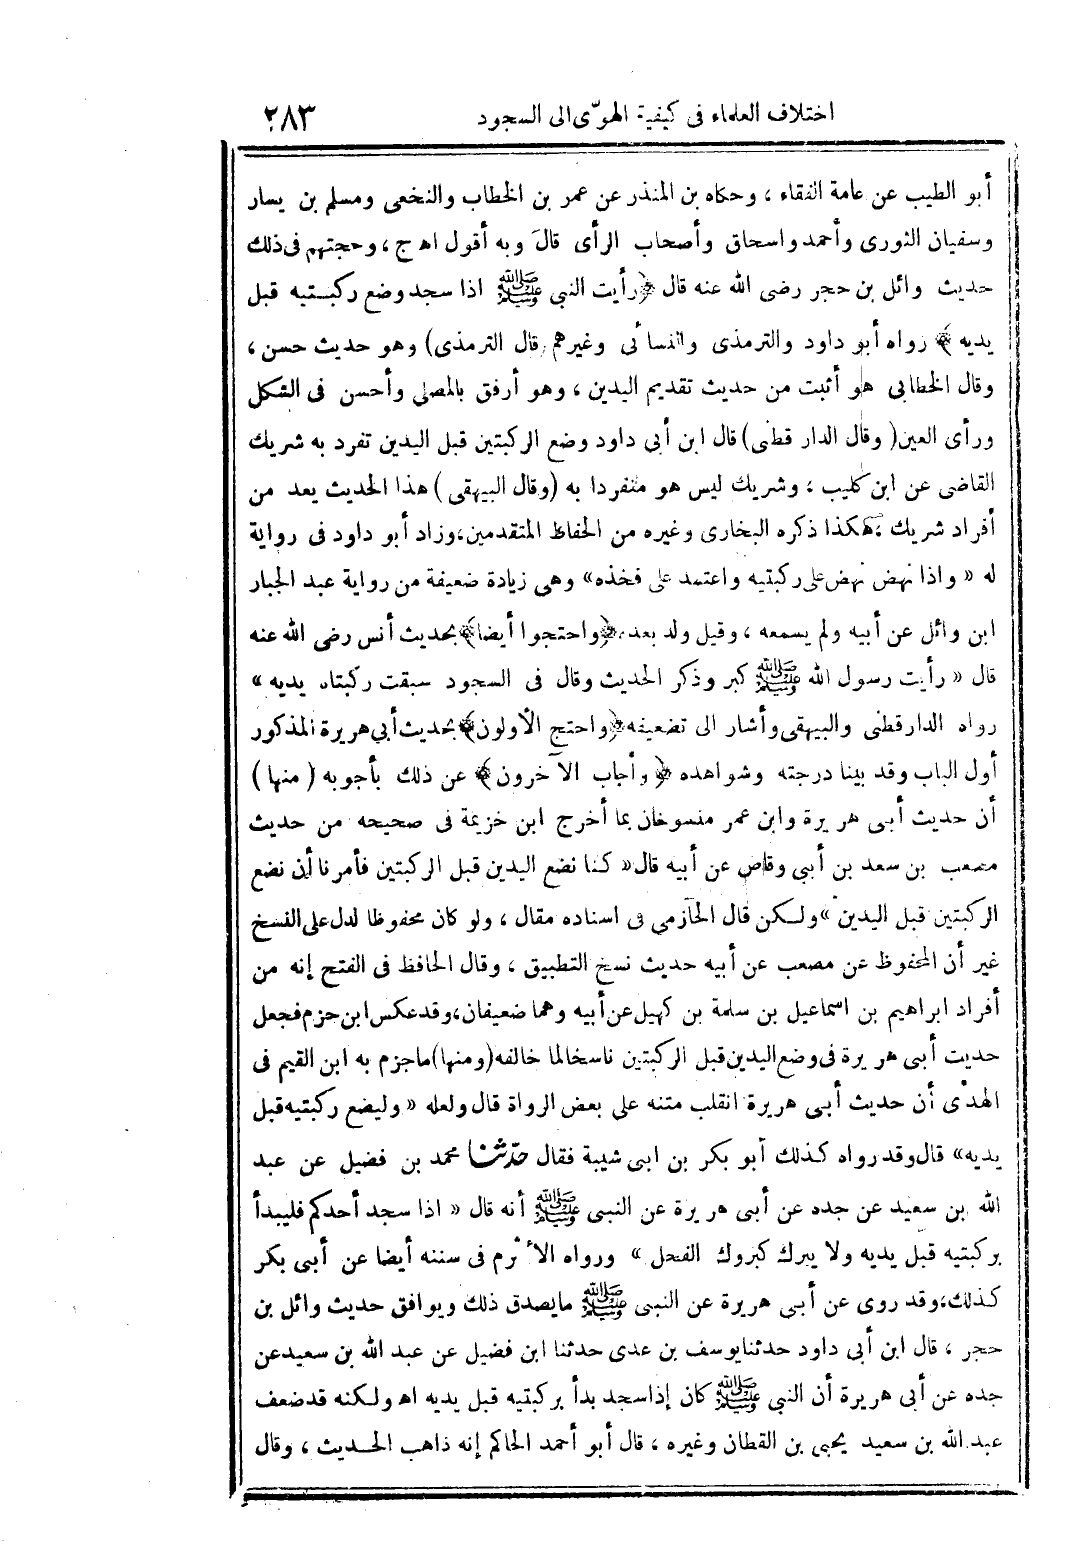 اختلاف العلماء فى كيفية الهوىّ الى السجود ٢٨٣
أبو الطيب عن عامة الفقاء ، وحكاه بن المنذر عن عمر بن الخطاب والنخعى ومسلم بن يسار
وسفيان الثورى وأحمد واسحاق وأصحاب الرأى قال وبه أقول اهـ ج ، وحجتهم فى ذلك
حديث وائل بن حجر رضى الله عنه قال ﴿رأيت النبى ﷺ اذا سجد وضع ركبتيه قبل
يديه﴾ رواه أبو داود والترمذى والنسائى وغيرهم (قال الترمذى) وهو حديث حسن ،
وقال الخطابى هو أثبت من حديث تقديم اليدين ، وهو أرفق بالمصلى وأحسن فى الشكل
ورأى العين (وقال الدار قطنى) قال ابن أبى داود وضع الركبتين قبل اليدين تفرد به شريك
القاضى عن ابن كليب ، وشريك ليس هو منفردا به (وقال البيهقى) هذا الحديث يعد من
أفراد شريك ، هكذا ذكره البخارى وغيره من الحفاظ المتقدمين، وزاد أبو داود فى رواية
له « واذا نهض نهض على ركبتيه واعتمد على فخذه» وهى زيادة ضعيفة من رواية عبد الجبار
ابن وائل عن أبيه ولم يسمعه ، وقيل ولد بعده ﴿واحتجوا أيضا﴾ بحديث أنس رضى الله عنه
قال « رأيت رسول الله ﷺ كبر وذكر الحديث وقال فى السجود سبقت ركبتاه يديه »
رواه الدارقطنى والبيهقى وأشار الى تضعيفه ﴿واحتج الأولون﴾ بحديث أبى هريرة المذكور
أول الباب وقد بينا درجته وشواهده ﴿وأجاب الآخرون﴾ عن ذلك بأجوبه (منها)
أن حديث أبى هريرة وابن عمر منسوخان بما أخرج ابن خزيمة فى صحيحه من حديث
مصعب بن سعد بن أبي وقاص عن أبيه قال « كنا نضع اليدين قبل الركبتين فأمرنا أن نضع
الركبتين قبل اليدين » ولكن قال الحازمى فى اسناده مقال ، ولو كان محفوظا لدل على النسخ
غير أن المحفوظ عن مصعب عن أبيه حديث نسخ التطبيق ، وقال الحافظ فى الفتح إنه من
أفراد ابراهيم بن اسماعيل بن سلمة بن كهيل عن أبيه وهما ضعيفان، وقد عكس ابن حزم فجعل
حديث أبى هريرة فى وضع اليدين قبل الركبتين ناسخا لما خالفه (ومنها) ماجزم به ابن القيم فى
الهدى أن حديث أبى هريرة انقلب متنه على بعض الرواة قال ولعله « وليضع ركبتيه قبل
يديه» قال وقد رواه كذلك أبو بكر بن ابى شيبة فقال حدّثنا محمد بن فضيل عن عبد
الله بن سعيد عن جده عن أبى هريرة عن النبى ﷺ أنه قال « اذا سجد أحدكم فليبدأ
بركبتيه قبل يديه ولا يبرك كبروك الفحل » ورواه الأثرم فى سننه أيضا عن أبى بكر
كذلك، وقد روى عن أبى هريرة عن النبى ﷺ مايصدق ذلك ويوافق حديث وائل بن
حجر ، قال ابن أبى داود حدثنا يوسف بن عدى حدثنا ابن فضيل عن عبد الله بن سعيد عن
جده عن أبى هريرة أن النبى ﷺ كان إذا سجد بدأ بركبتيه قبل يديه اهـ ولكنه قد ضعف
عبد الله بن سعيد يحيى بن القطان وغيره ، قال أبو أحمد الحاكم إنه ذاهب الحديث ، وقال